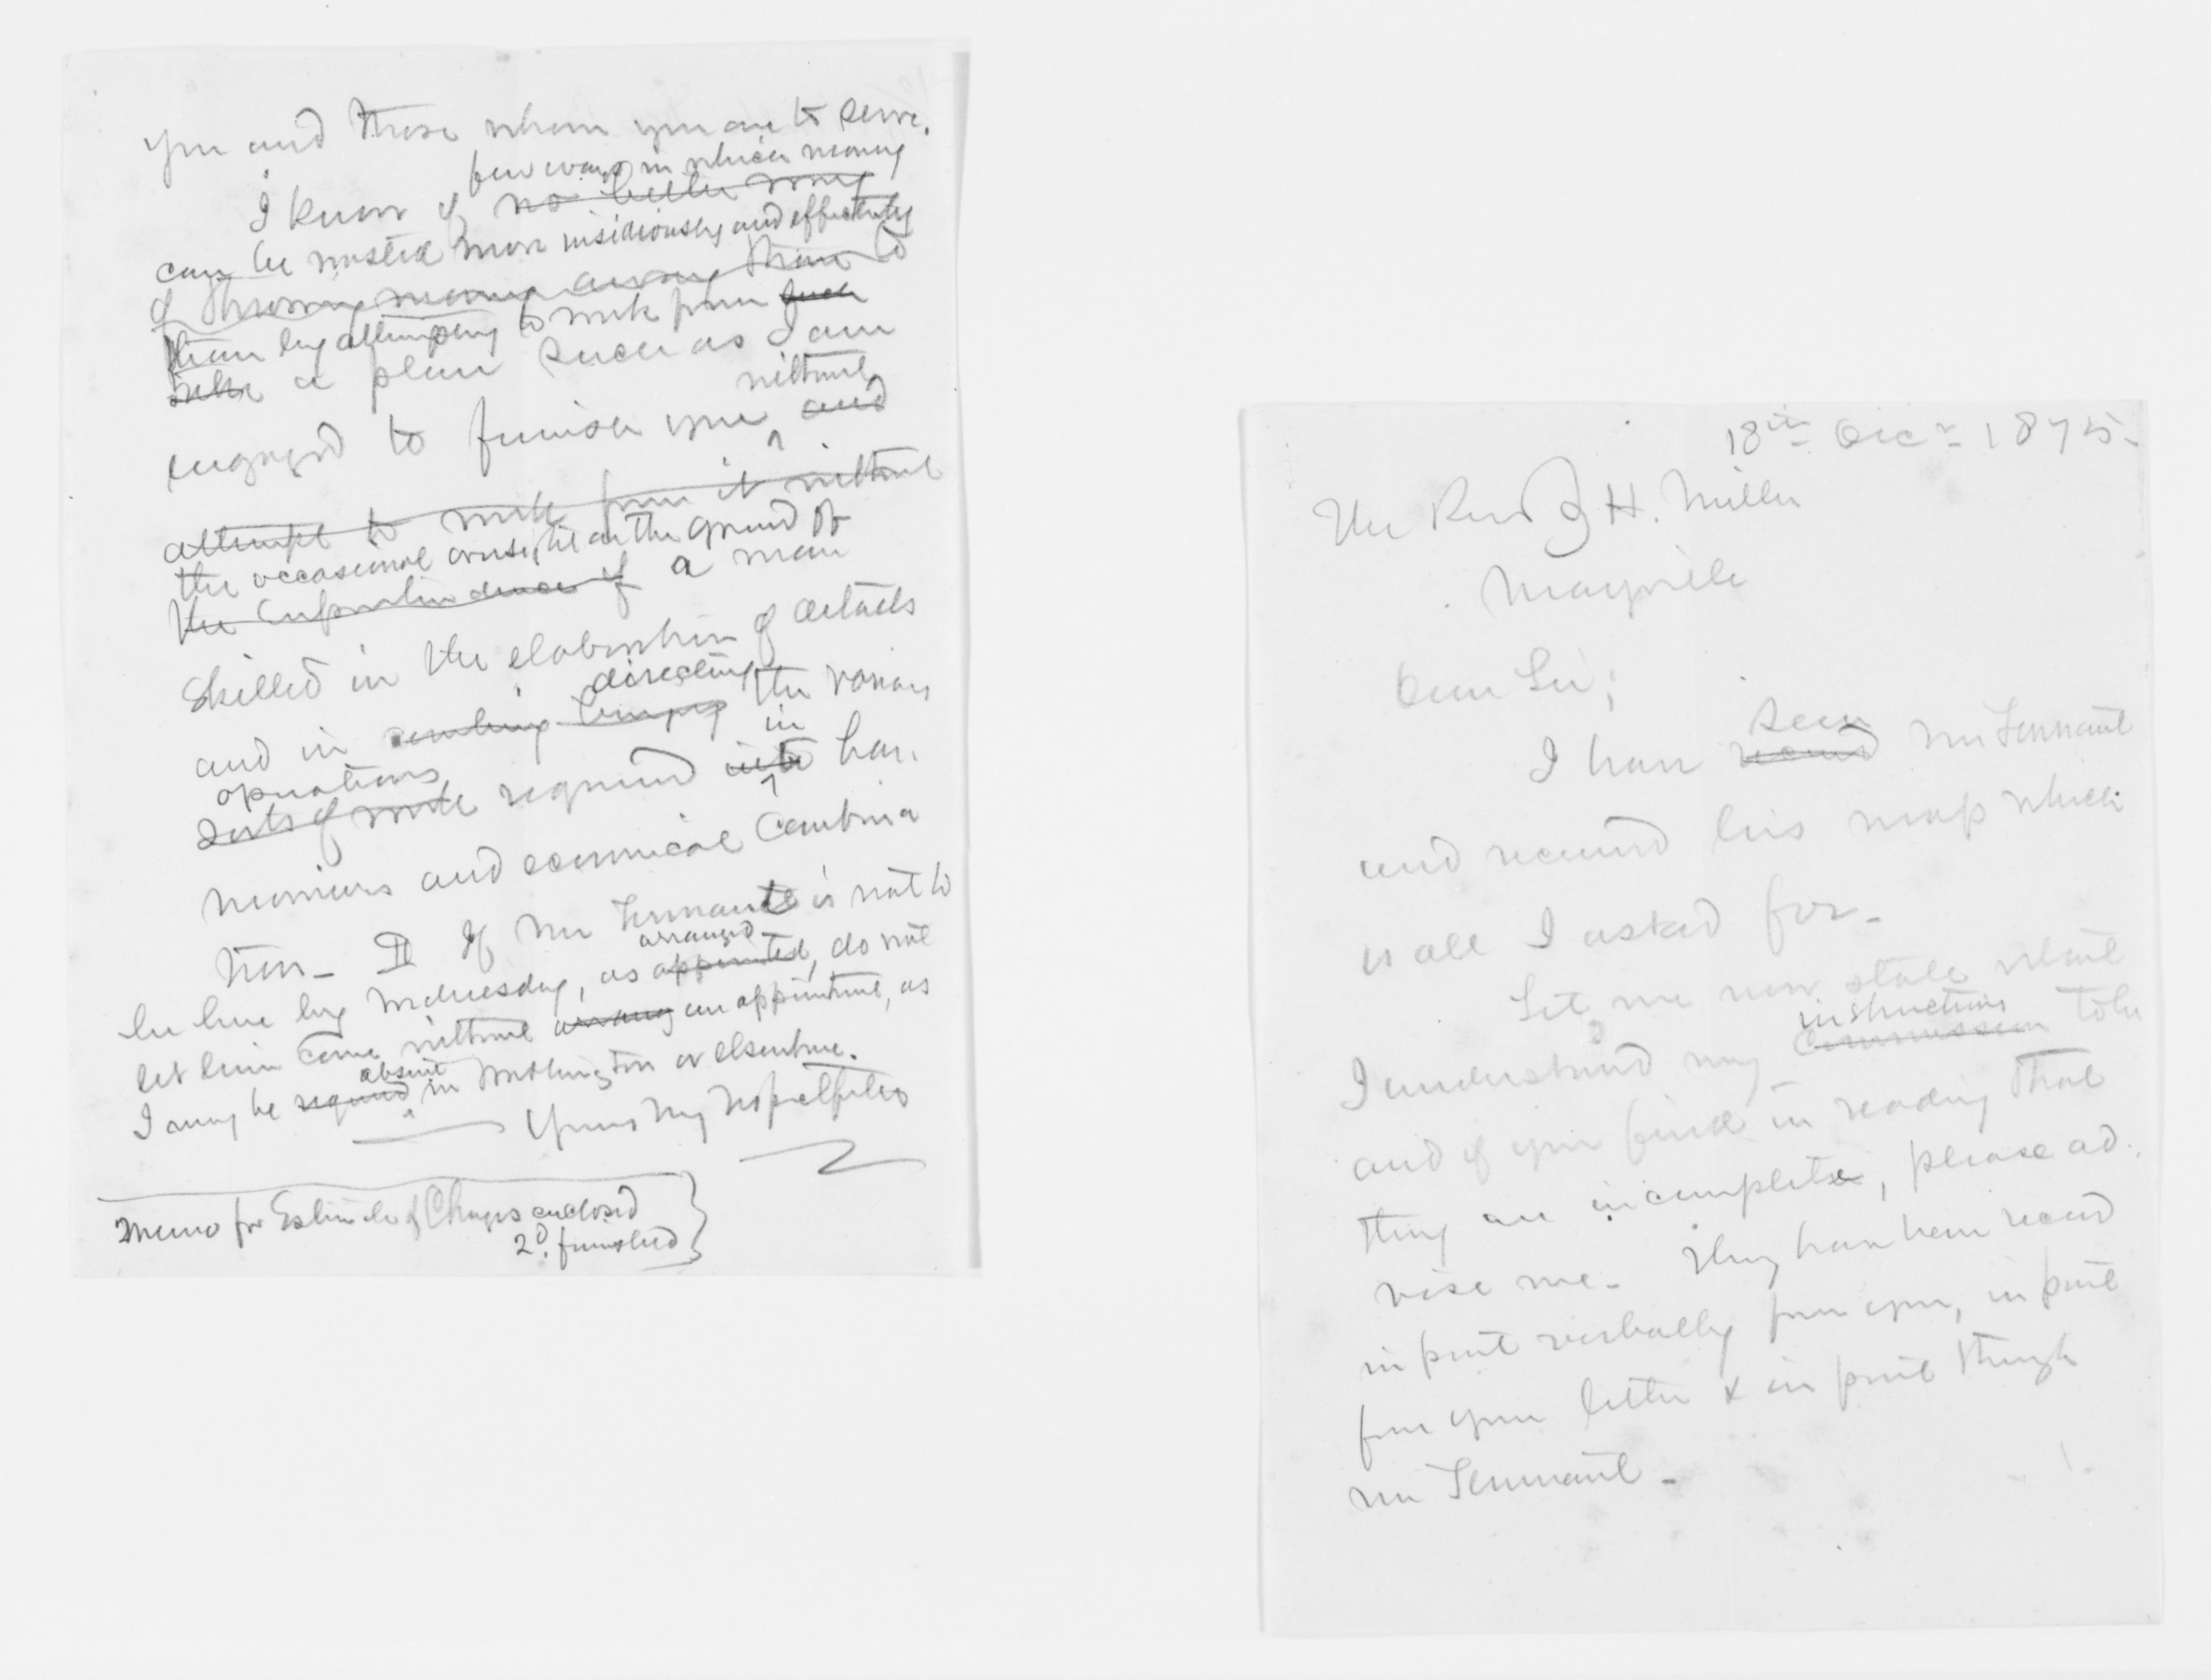 you and those whom you are to serve.
few ways in which money
I know of no better way
can be wasted more insidiously and effectively
of throwing money away than to
than by attempting to work from such
a plan such as I am
without
engaged to furnish you and
attempt to work from it without
the occasional oversight on the ground of
the superintendence of a man
skilled in the elaboration of details
directing
and in the various
operations in
sorts of work required into har-
monious and economical combina
tion_ If Mr Tennant is not to
arranged
be here by Wednesday, as appointed, do not
let him come without arrang an appointment, as
absent
I may be required in Washington or elsewhere.
Yours Very Respectfully
Memo for Estimate of Charges enclosed
2d. furnished
18th Decr 1875-
The Revd J H. Miller
Maryville
Dear Sir;
seen
I have Mr Tennant
and received his map which
is all I asked for_
Let me now state what
instructions
I understand my Commission to be
and if you find in reading that
they are incomplete, please ad-
vise me_ They have been recevd
in part verbally from you, in part
from your letter & in part through
Mr Tennant_